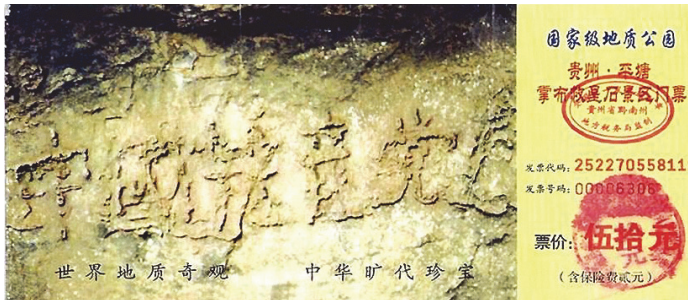 中國共產党亡
世界地质奇观 中华旷代珍宝
国家级地质公园
贵州·平塘
掌布救星石景区门票
贵州省黔南州
地方税务局监制
发票代码：25227055811
发票号码：
票价：伍拾元
（含保险费贰元）